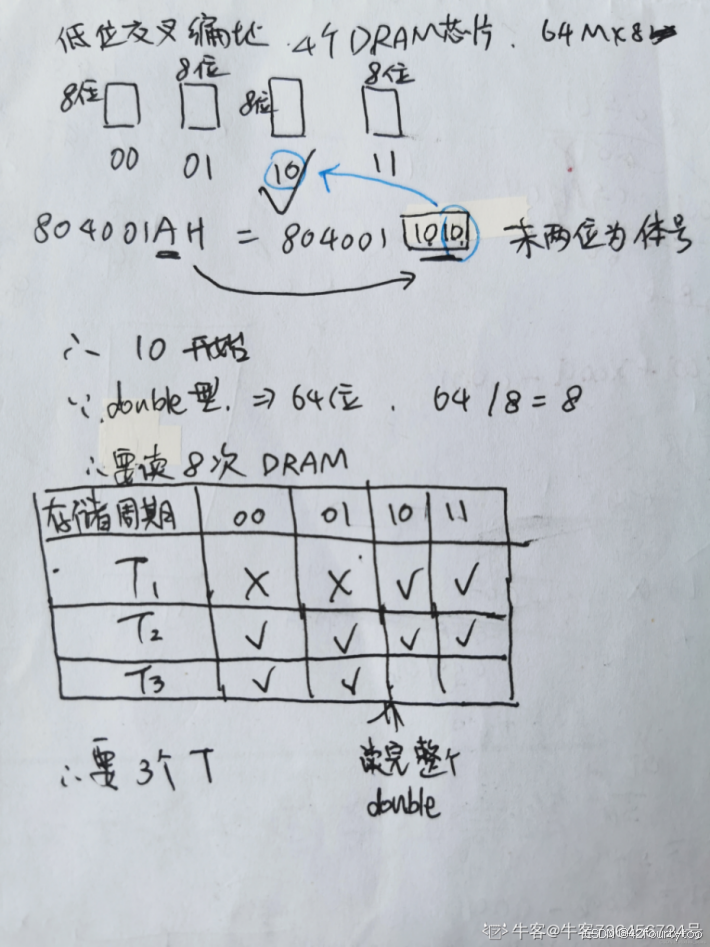 低位交叉编址. 4个DRAM芯片. 64M×8
8位 8位 8位 8位
00 01 10 11
804001AH = 804001 1010 末两位为体号
∴ 10 开始
∵ double型. ⇒ 64位. 64/8=8
∴需读8次DRAM
存储周期 00 01 10 11
T₁ × × ✓ ✓
T₂ ✓ ✓ ✓ ✓
T₃ ✓ ✓
∴要3个T
读完整个
double
牛客@牛客736456724号